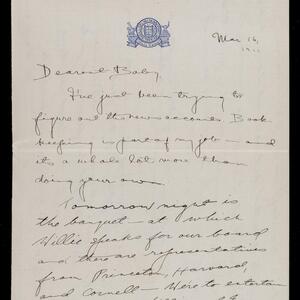 Mar 16,
Dearest Baby,
I've just been trying to
figure out the new accounts. Book
keeping is part of my job — and
it's a whole lot more than
doing your own.
Tomorrow night is
the banquet — at which
Willie speaks for our board
and there are representatives
from Princeton, Harvard,
and Cornell — were to entertain